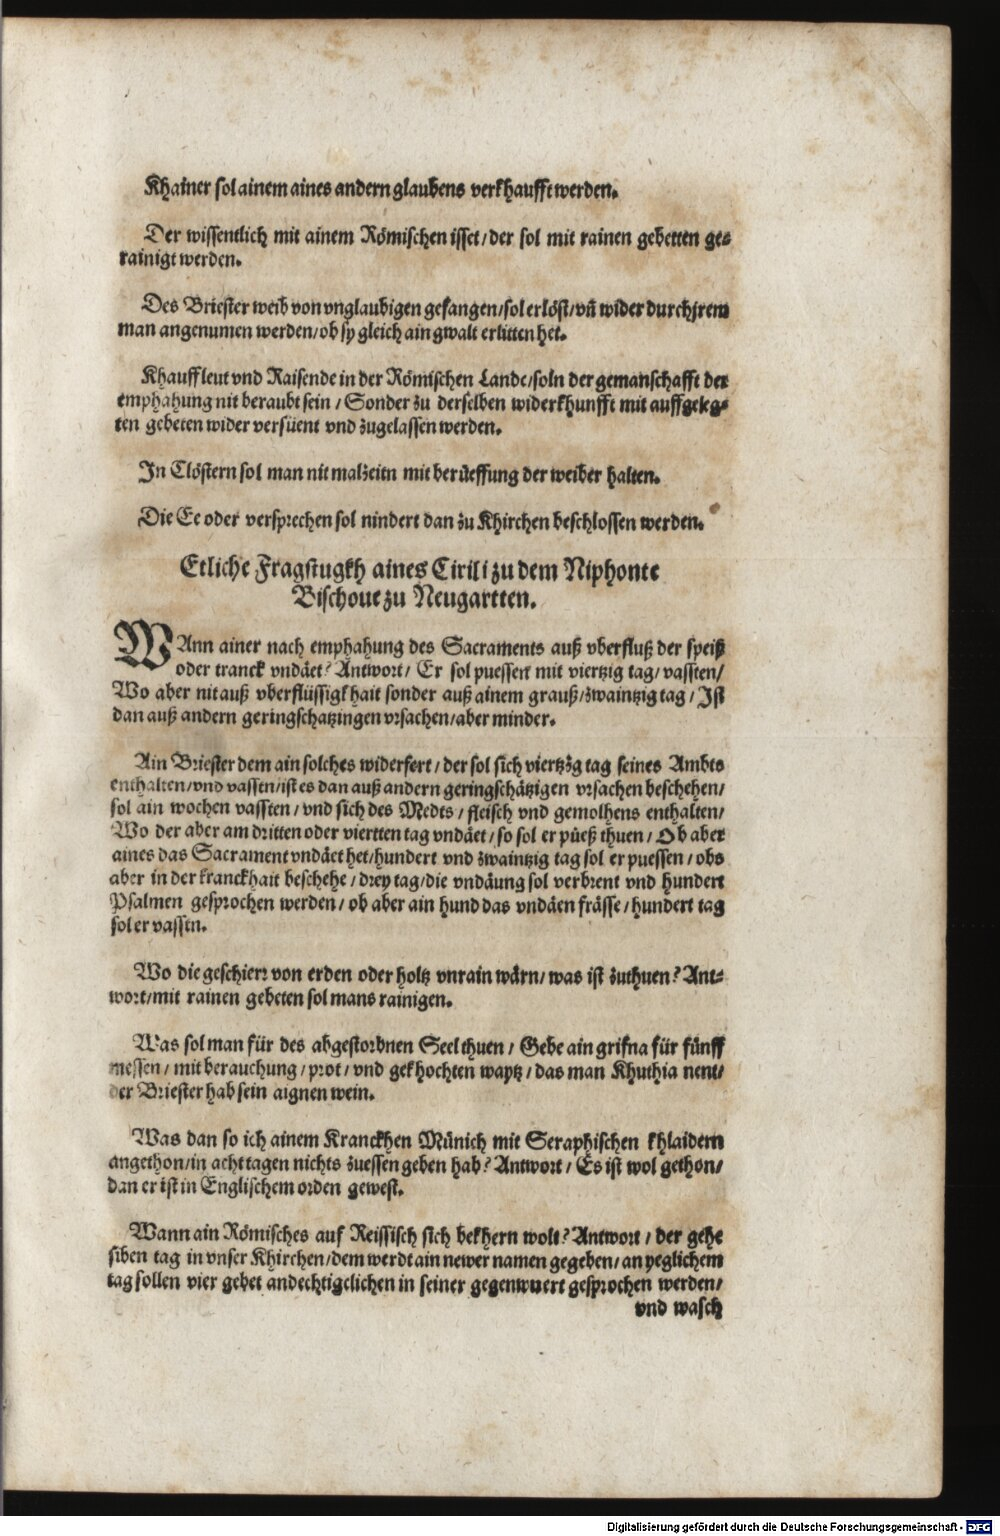 Khainer sol ainem aines andern glaubens verkhaufft werden.
Der wissentlich mit ainem Römischen isset / der sol mit rainen gebetten ge⸗
rainigt werden.
Des Briester weib von vnglaubigen gefangen / sol erlöst / vn̄ wider durch jrem
man angenumen werden / ob sy gleich ain gwalt erlitten het.
Khauffleut vnd Raisende in der Römischen Lande / soln der gemanschafft der
emphahung nit beraubt sein / Sonder zu derselben widerkhunfft mit auffgeleg⸗
ten gebeten wider versüent vnd zugelassen werden.
In Clöstern sol man nit malzeitn mit berüeffung der weiber halten.
Die Ee oder versprechen sol nindert dan zu Khirchen beschlossen werden.
Etliche Fragstugkh aines Cirili zu dem Niphonte
Bischoue zu Neugartten.
WAnn ainer nach emphahung des Sacraments auß vberfluß der speiß
oder tranck vndäet? Antwort / Er sol puessen mit viertzig tag / vassten /
Wo aber nit auß vberflüssigkhait sonder auß ainem grauß / zwaintzig tag / Ist
dan auß andern geringschatzingen vrsachen / aber minder.
Ain Briester dem ain solches widerfert / der sol sich viertzig tag seines Ambts
enthalten / vnd vasstn / ist es dan auß andern geringschätzigen vrsachen beschehen /
sol ain wochen vassten / vnd sich des Medts / fleisch vnd gemolhens enthalten /
Wo der aber am dritten oder viertten tag vndäet / so sol er püeß thuen / Ob aber
aines das Sacrament vndäet het / hundert vnd zwaintzig tag sol er puessen / obs
aber in der kranckhait beschehe / drey tag / die vndäung sol verbrent vnd hundert
Psalmen gesprochen werden / ob aber ain hund das vndäen frässe / hundert tag
sol er vasstn.
Wo die geschierr von erden oder holtz vnrain wärn / was ist zuthuen? Ant⸗
wort / mit rainen gebeten sol mans rainigen.
Was sol man für des abgestorbnen Seel thuen / Gebe ain grifna für fünff
messen / mit berauchung / prot / vnd gekhochten waytz / das man Khuthia nent /
der Briester hab sein aignen wein.
Was dan so ich ainem Kranckhen Münich mit Seraphischen khlaidern
angethon / in acht tagen nichts zuessen geben hab? Antwort / Es ist wol gethon /
dan er ist in Englischem orden gewest.
Wann ain Römisches auf Reissisch sich bekhern wolt? Antwort / der gehe
siben tag in vnser Khirchen / dem werdt ain newer namen gegeben / an yeglichem
tag sollen vier gebet andechtigclichen in seiner gegenwuert gesprochen werden /
vnd wasch
Digitalisierung gefördert durch die Deutsche Forschungsgemeinschaft - DFG